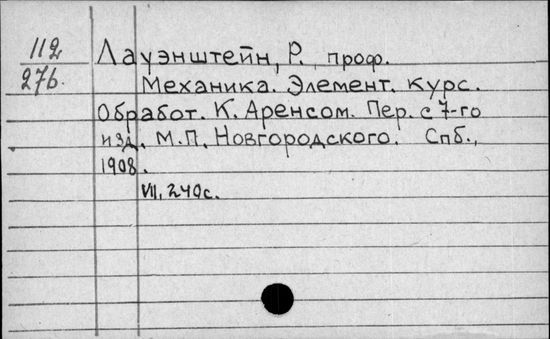 112
276.
Лауэнштейн, Р., проф.
Механика. Элемент. курс.
Обработ. К. Аренсом. Пер. с 7-го
изд. М.П. Новгородского. Спб.,
1908.
VII, 240с.